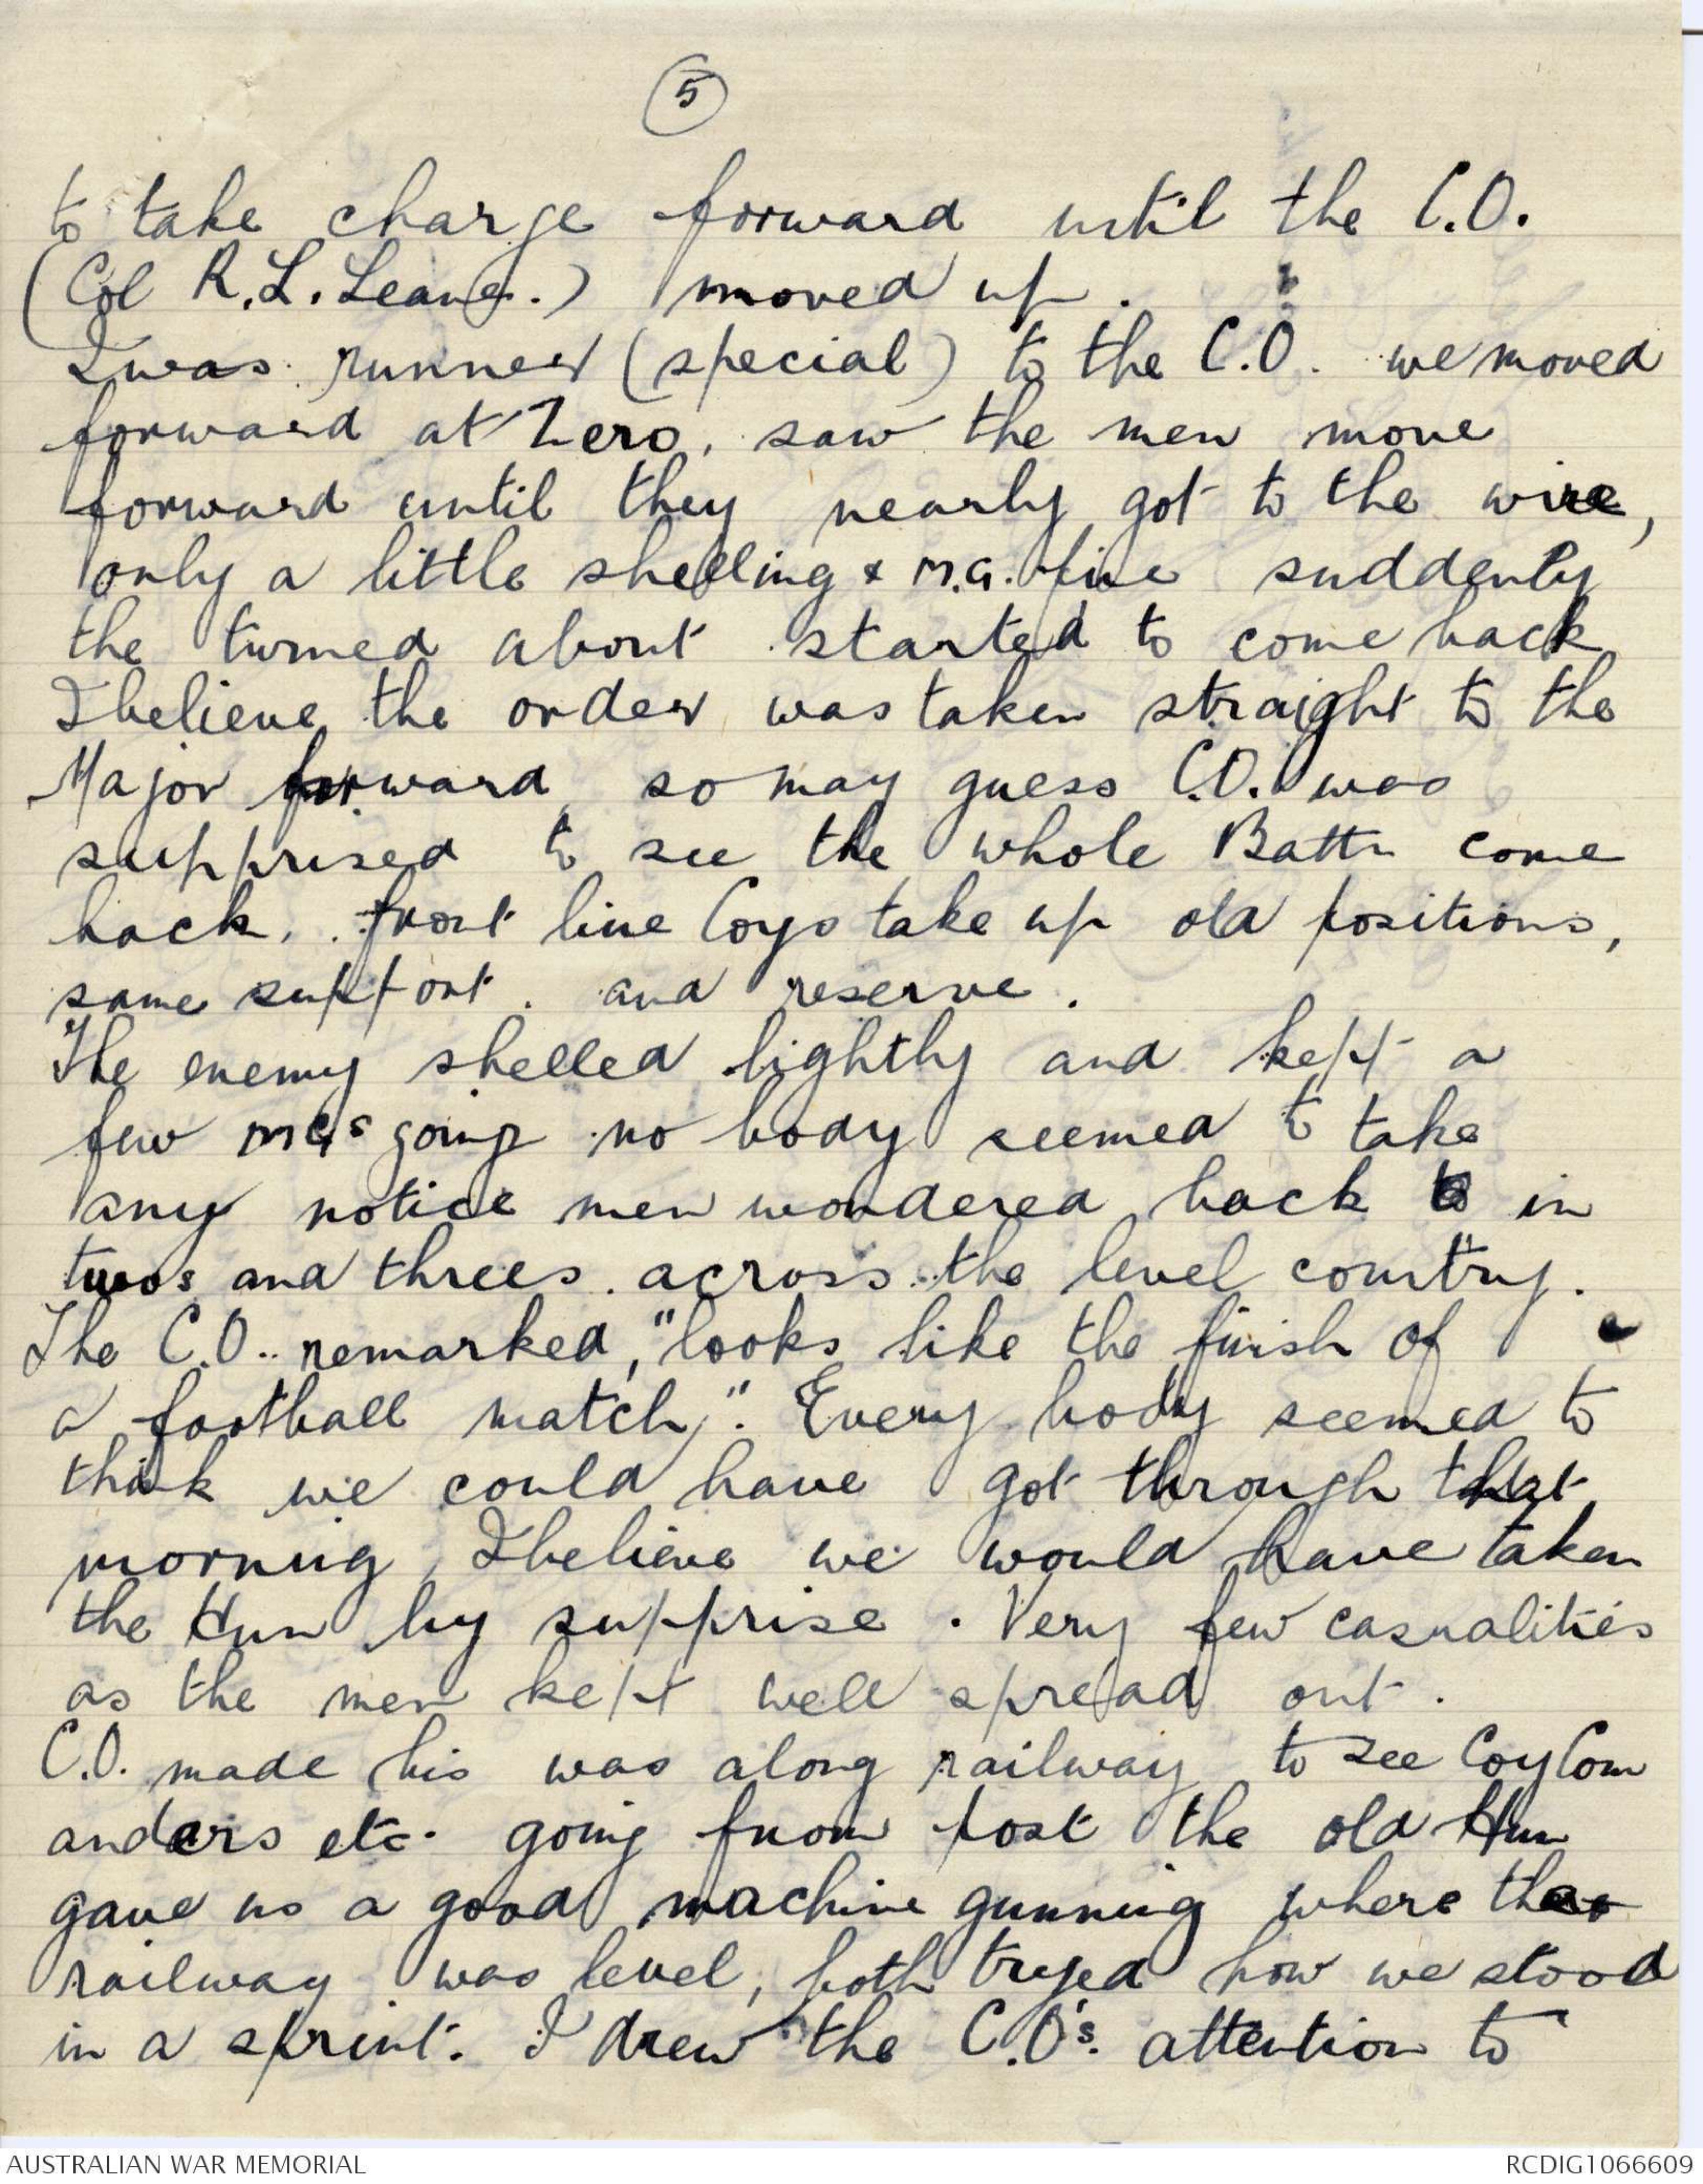 5
to take charge forward until the C.O.
(Col R.L. Leane.) moved up.
I was runner (special) to the C.O. we moved
forward at Zero, saw the men move
forward until they nearly got to the wire,
only a little shelling & M.G. fire suddenly
the turned about started to come back
I believe the order was taken straight to the
Major forward, so may guess C.O. was
supprised to see the whole Battn come
back. front line Coys take up old positions,
same support. and reserve.
The enemy shelled lightly and kept a
few MGs going no body seemed to take
any notice men wondered back in
twos and threes. across the level country.
The C.O. remarked, "looks like the finish of
a football match". Every body seemed to
think we could have got through that
morning, I believe we would have taken
the Hun by supprise. Very few casualities
as the men kept well spread out.
C.O. made his was along railway to see Coy Com
anders etc. going from post the old Hun
gave us a good machine gunning where the
railway was level, both tryed how we stood
in a sprint. I drew the C.O's. attention to
AUSTRALIAN WAR MEMORIAL
RCDIG1066609